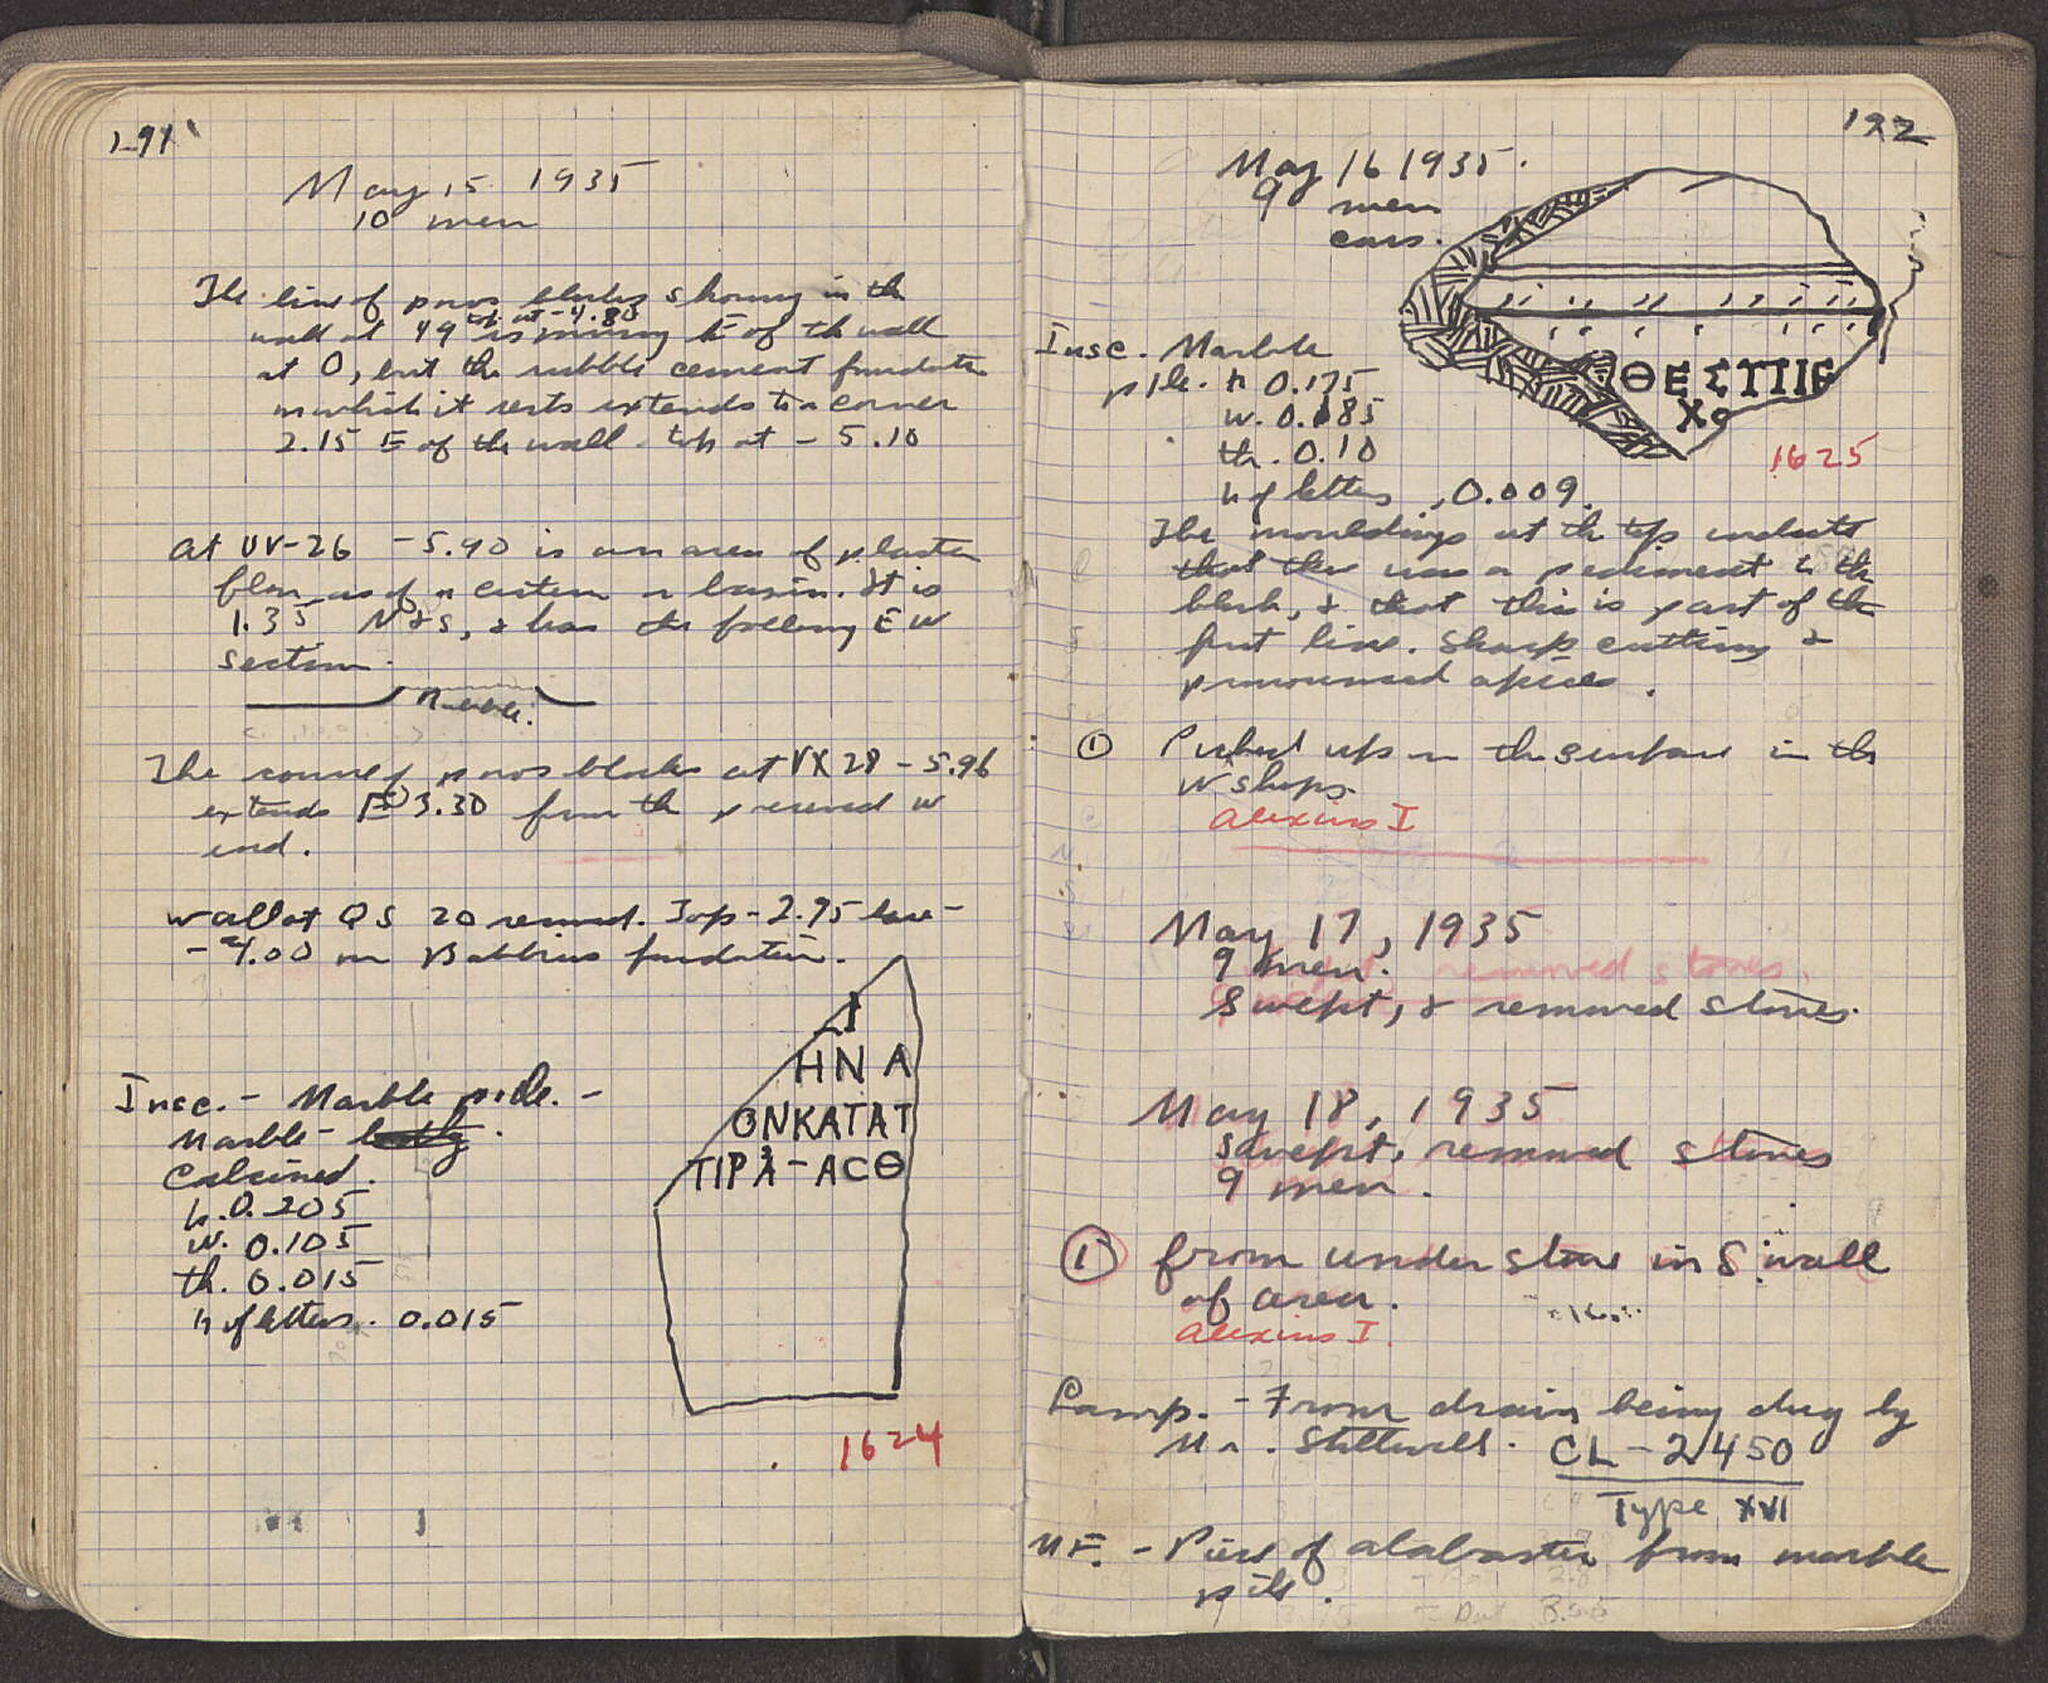 191
May 15 1935
10 men
The line of poros blocks showing in the
top at -4.80
wall at 49 is missing E of the wall
at O, but the rubble cement foundation
on which it rests extends to a corner
2.15 E of the wall - top at - 5.10
At UV-26 -5.90 is an area of plaster
floor as of a cistern or basin. It is
1.35 N & S, & has the following E W
section.
The course of poros blocks at VX 28 - 5.96
extends E 3.30 from the preserved W
end.
Wall at QS 20 removed. Top - 2.95 base -
-4.00 on Babbius foundation.
Ι
ΗΝΑ
ΟΝΚΑΤΑΤ
ΤΙΡΑ-ΑCΘ
Insc. - Marble pile. -
Marble -
Calcined.
h. 0.205
w. 0.105
th. 0.015
h of letters. 0.015
1624
192
May 16 1935.
9 men
cars.
ΘΕΣΠΙΕ
Χο
1625
Insc. Marble
pile. h 0.175
w. 0.185
th. 0.10
h of letters, 0.009.
The mouldings at the top indicate
that there was a pediment to the
block, & that this is part of the
first line. Sharp cutting &
pronounced apices.
① Picked up on the surface in the
W shops.
Alexius I
May 17, 1935
9 men.
Swept, & removed stones.
May 18, 1935
Swept, removed stones
9 men.
① from under stone in S. wall
of area.
Alexius I.
Lamp. - From drain being dug by
Mr. Stillwell. CL - 2450
Type XVI
MF. - Piece of alabaster from marble
pile.